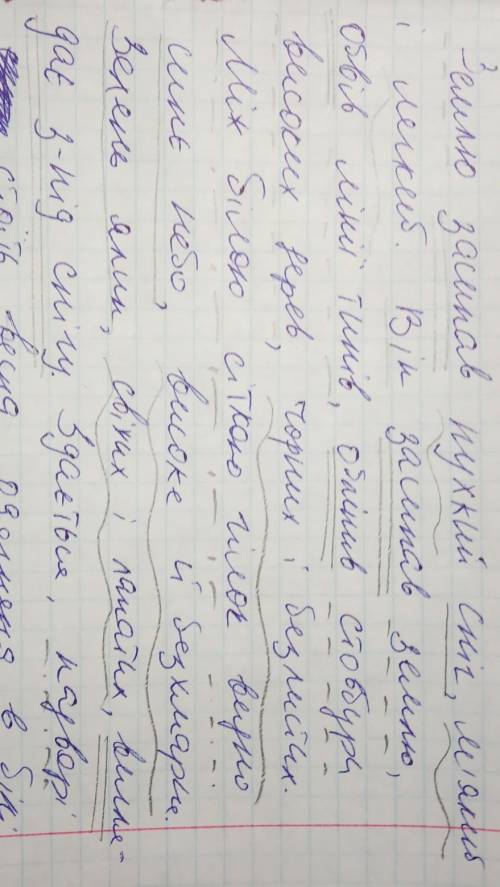 Землю засипав пухкий сніг, м'який
і легкий. Він засипав землю,
обвів лінії тинів, обліпив стовбури
високих дерев, чорних і безлистих.
Між білою сіткою гілок видно
синє небо, високе й безхмарне.
Зелень ялин, свіжих і лапатих, вигля-
дає з-під снігу. Здається, надворі
стоїть весна в